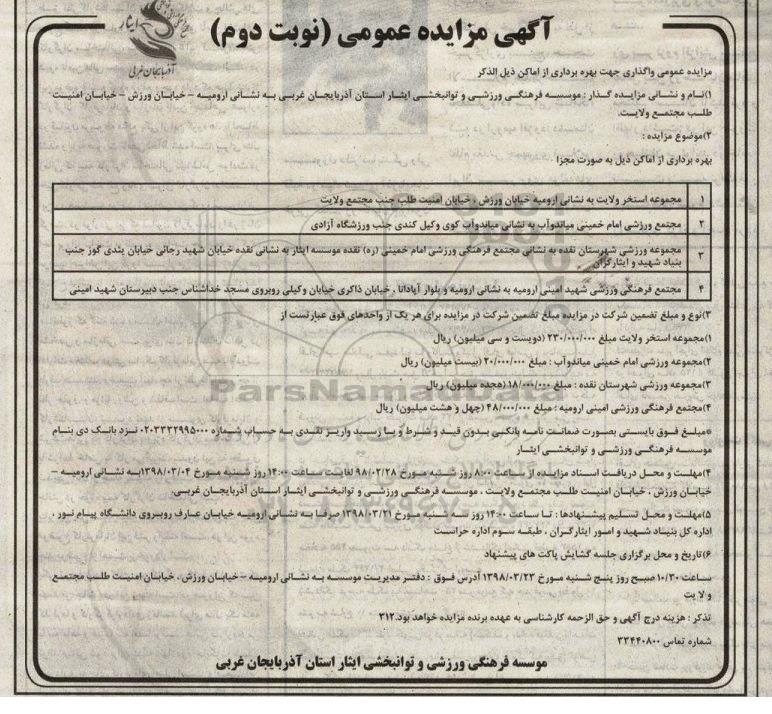 آگهی مزایده عمومی (نوبت دوم)
ایثار
آذربایجان غربی
مزایده عمومی واگذاری جهت بهره برداری از اماکن ذیل الذکر
۱)نام و نشانی مزایده گذار : موسسه فرهنگی ورزشی و توانبخشی ایثار استان آذربایجان غربی به نشانی ارومیه – خیابان ورزش – خیابان امنیت
طلب مجتمع ولایت.
۲)موضوع مزایده :
بهره برداری از اماکن ذیل به صورت مجزا
۱ مجموعه استخر ولایت به نشانی ارومیه خیابان ورزش ، خیابان امنیت طلب جنب مجتمع ولایت
۲ مجتمع ورزشی امام خمینی میاندوآب به نشانی میاندوآب کوی وکیل کندی جنب ورزشگاه آزادی
۳ مجموعه ورزشی شهرستان نقده به نشانی مجتمع فرهنگی ورزشی امام خمینی (ره) نقده موسسه ایثار به نشانی نقده خیابان شهید رجائی خیابان یندی گوز جنب
بنیاد شهید و ایثارگران
۴ مجتمع فرهنگی ورزشی شهید امینی ارومیه به نشانی ارومیه و بلوار آپادانا ، خیابان ذاکری خیابان وکیلی روبروی مسجد خداشناس جنب دبیرستان شهید امینی
۳)نوع و مبلغ تضمین شرکت در مزایده مبلغ تضمین شرکت در مزایده برای هر یک از واحدهای فوق عبارتست از
۱)مجموعه استخر ولایت مبلغ ۲۳۰/۰۰۰/۰۰۰ (دویست و سی میلیون) ریال
۲)مجموعه ورزشی امام خمینی میاندوآب : مبلغ ۲۰/۰۰۰/۰۰۰ (بیست میلیون) ریال
۳)مجموعه ورزشی شهرستان نقده : مبلغ ۱۸/۰۰۰/۰۰۰ (هجده میلیون) ریال
۴)مجتمع فرهنگی ورزشی امینی ارومیه : مبلغ ۴۸/۰۰۰/۰۰۰ (چهل و هشت میلیون) ریال
*مبلغ فوق بایستی بصورت ضمانت نامه بانکی بدون قید و شرط و یا رسید واریز نقدی به حساب شماره ۰۲۰۳۳۳۲۹۹۵۰۰۰ نزد بانک دی بنام
موسسه فرهنگی ورزشی و توانبخشی ایثار
۴)مهلت و محل دریافت اسناد مزایده از ساعت ۸:۰۰ روز شنبه مورخ ۹۸/۰۲/۲۸ لغایت ساعت ۱۴:۰۰ روز شنبه مورخ ۱۳۹۸/۰۳/۰۴ به نشانی ارومیه –
خیابان ورزش ، خیابان امنیت طلب مجتمع ولایت ، موسسه فرهنگی ورزشی و توانبخشی ایثار استان آذربایجان غربی.
۵)مهلت و محل تسلیم پیشنهادها : تا ساعت ۱۴:۰۰ روز سه شنبه مورخ ۱۳۹۸/۰۳/۲۱ صرفا به نشانی ارومیه خیابان عارف روبروی دانشگاه پیام نور ،
اداره کل بنیاد شهید و امور ایثارگران ، طبقه سوم اداره حراست
۶)تاریخ و محل برگزاری جلسه گشایش پاکت های پیشنهاد
ساعت ۱۰/۳۰ صبح روز پنج شنبه مورخ ۱۳۹۸/۰۳/۲۳ آدرس فوق : دفتر مدیریت موسسه به نشانی ارومیه – خیابان ورزش ، خیابان امنیت طلب مجتمع
ولایت
تذکر : هزینه درج آگهی و حق الزحمه کارشناسی به عهده برنده مزایده خواهد بود.۳۱۲
شماره تماس ۳۳۴۴۰۸۰۰
موسسه فرهنگی ورزشی و توانبخشی ایثار استان آذربایجان غربی
ParsNamadData